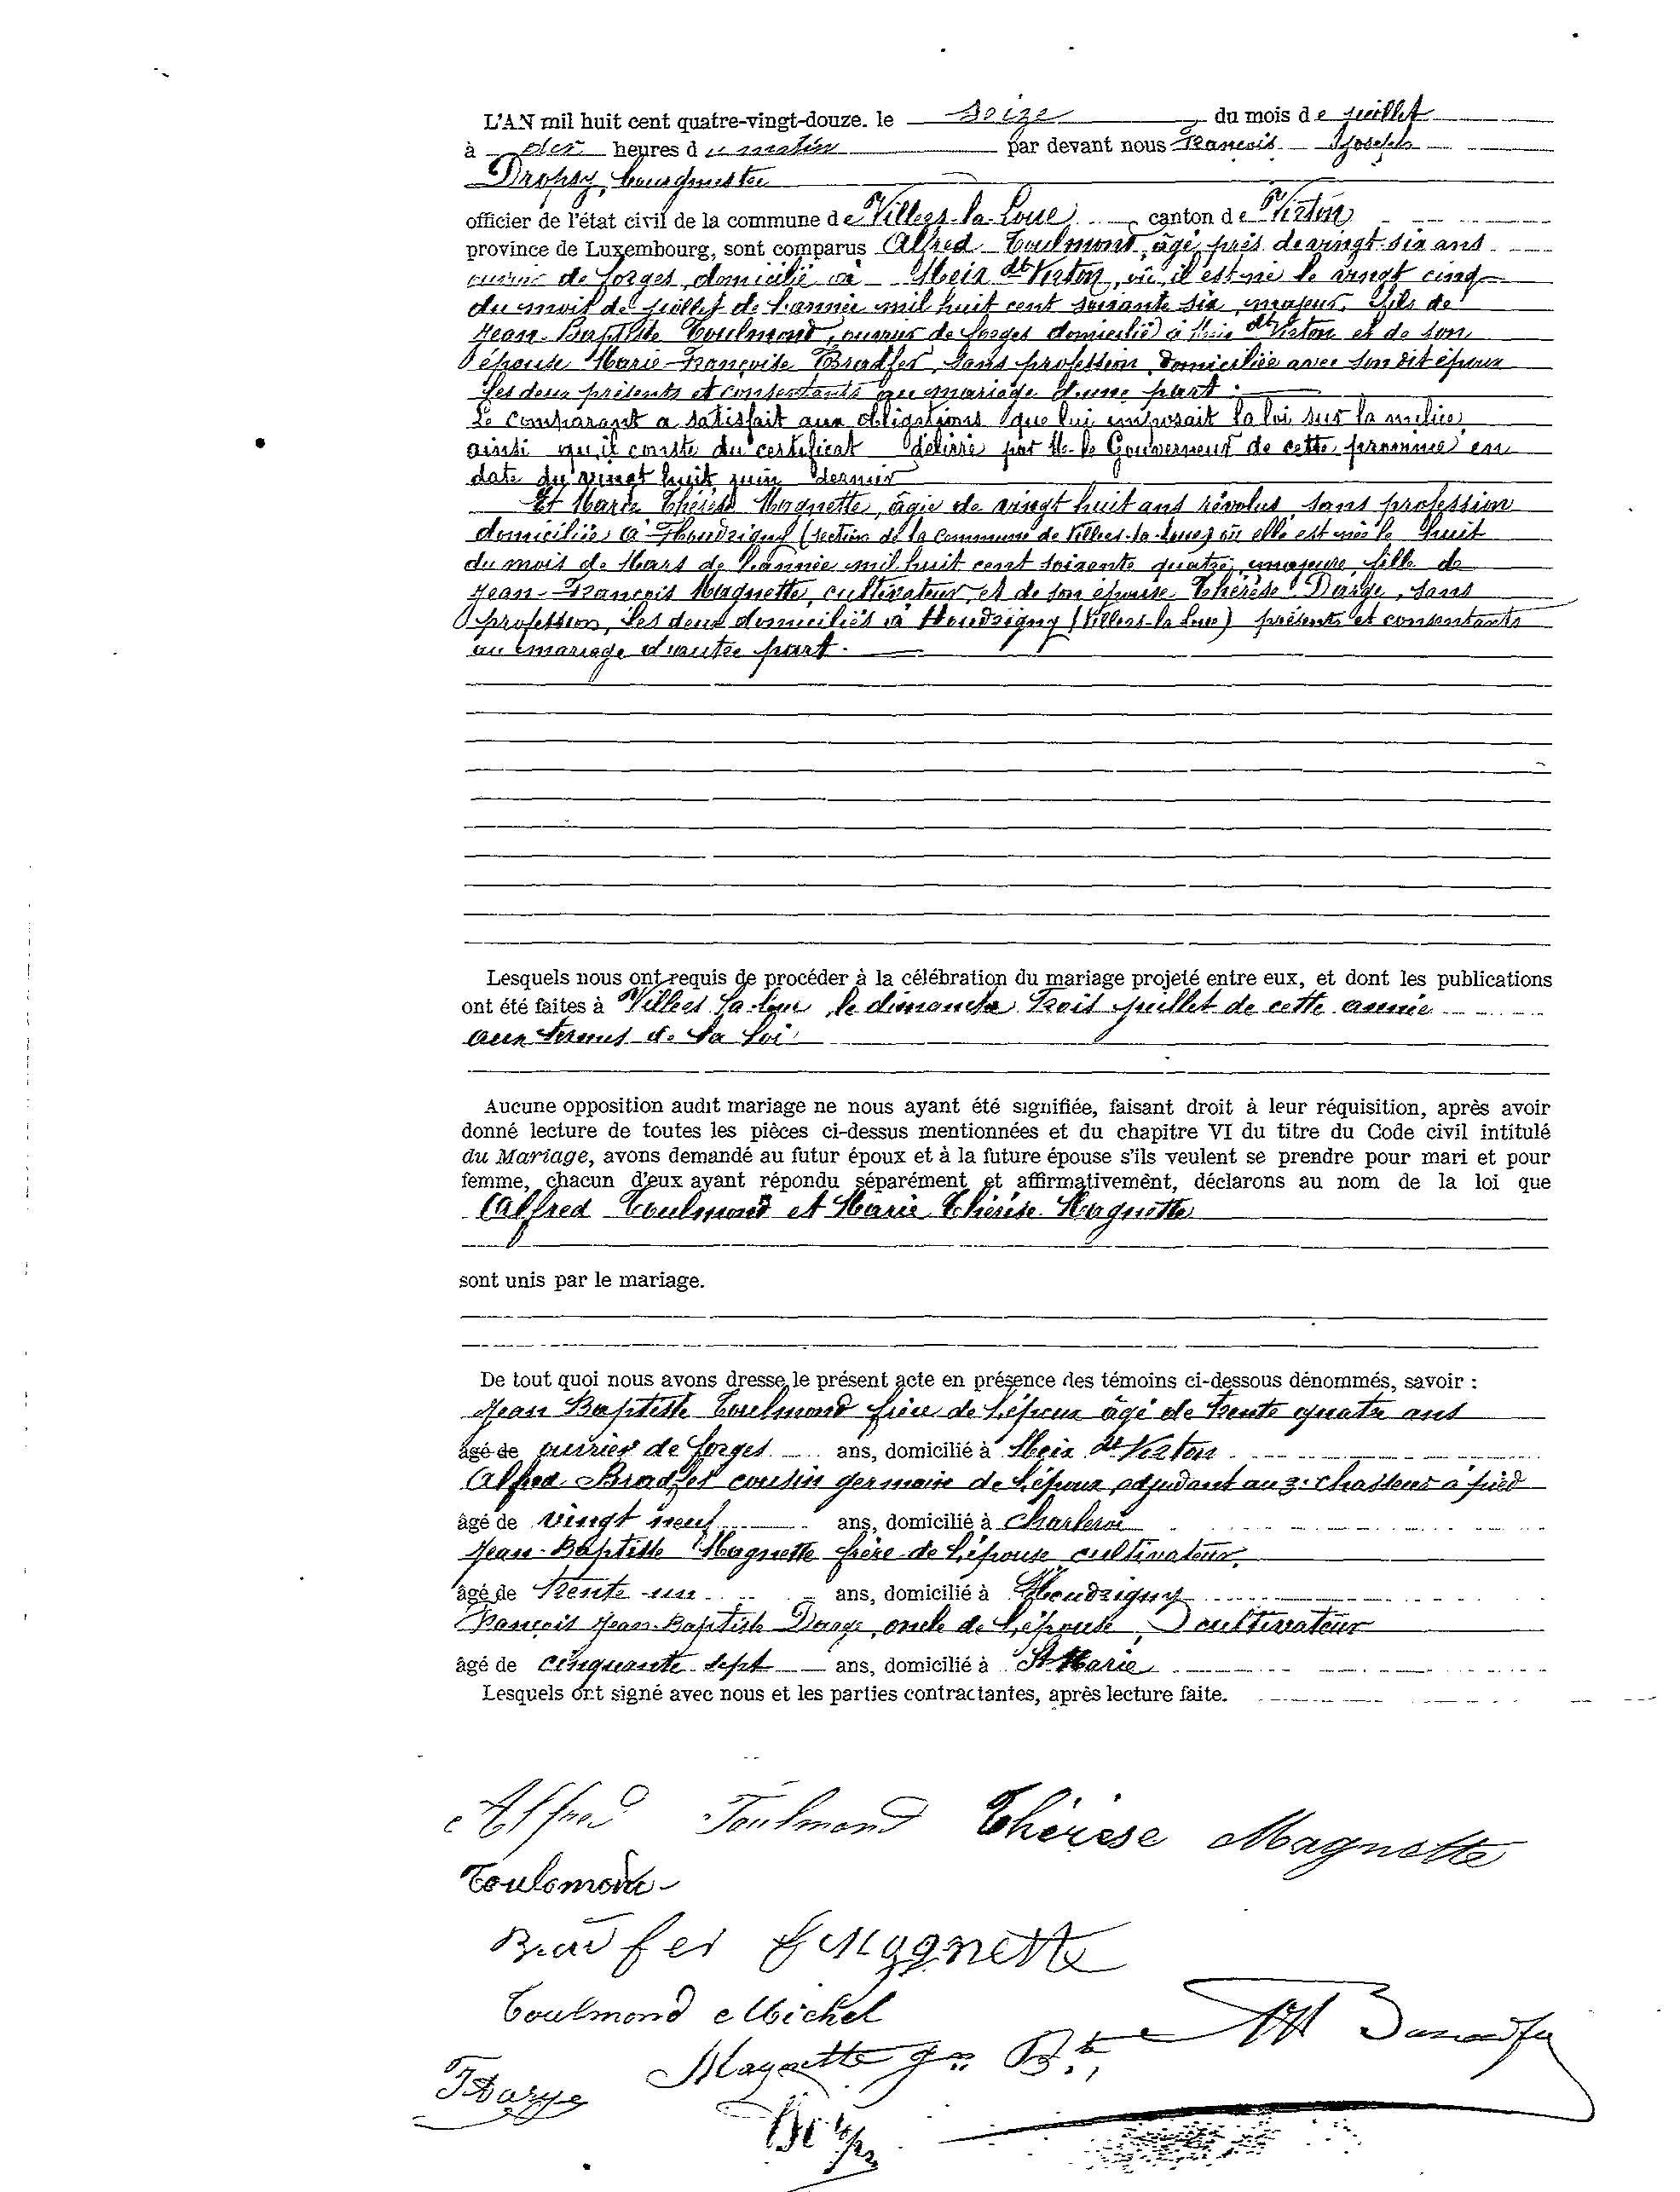 L'AN mil huit cent quatre-vingt-douze. le seize du mois de juillet
à dix heures du matin par devant nous François Joseph
Dropsy, bourgmestre
officier de l'état civil de la commune de Villers-la-Loue canton de Virton
province de Luxembourg, sont comparus Alfred Toulmond, âgé près de vingt-six ans
ouvrier de forges domicilié à Meix dt Virton, où il est né le vingt cinq
du mois de juillet de l'année mil huit cent soixante six, majeur, fils de
Jean-Baptiste Toulmond, ouvrier de forges domicilié à Meix dt Virton et de son
épouse Marie-Françoise Bradfer, sans profession, domiciliée avec son dit époux
les deux présents et consentants au mariage d'une part.
Le comparant a satisfait aux obligations que lui imposait la loi sur la milice,
ainsi qu'il conste du certificat délivré par M. le Gouverneur de cette province en
date du vingt huit juin dernier
Et Marie Thérèse Magnette, âgée de vingt huit ans révolus, sans profession
domiciliée à Houdrigny (section de la commune de Villers-la-Loue) où elle est née le huit
du mois de Mars de l'année mil huit cent soixante quatre, majeure, fille de
Jean-François Magnette, cultivateur, et de son épouse Thérèse Darge, sans
profession, les deux domiciliés à Houdrigny (Villers-la-Loue) présents et consentants
au mariage d'autre part.
Lesquels nous ont requis de procéder à la célébration du mariage projeté entre eux, et dont les publications
ont été faites à Villers-la-Loue, le dimanche trois juillet de cette année
aux termes de la loi
Aucune opposition audit mariage ne nous ayant été signifiée, faisant droit à leur réquisition, après avoir
donné lecture de toutes les pièces ci-dessus mentionnées et du chapitre VI du titre du Code civil intitulé
du Mariage, avons demandé au futur époux et à la future épouse s'ils veulent se prendre pour mari et pour
femme, chacun d'eux ayant répondu séparément et affirmativemènt, déclarons au nom de la loi que
Alfred Toulmond et Marie Thérèse Magnette
sont unis par le mariage.
De tout quoi nous avons dressé le présent acte en présence des témoins ci-dessous dénommés, savoir :
Jean Baptiste Toulmond frère de l'époux âgé de trente quatre ans
âgé de ouvrier de forges ans, domicilié à Meix dt Virton
Alfred Bradfer cousin germain de l'époux, adjudant au 3e Chasseurs à pied
âgé de vingt neuf ans, domicilié à Charleroi
Jean-Baptiste Magnette frère de l'épouse, cultivateur,
âgé de trente-un ans, domicilié à Houdrigny
François Jean-Baptiste Darge, oncle de l'épouse, cultivateur
âgé de cinquante-sept ans, domicilié à Ste Marie
Lesquels ont signé avec nous et les parties contractantes, après lecture faite.
Alfred Toulmond Thérèse Magnette
Toulemonde
Bradfer Magnette
Toulmond Michel
Magnette Jn Bte,
Darge